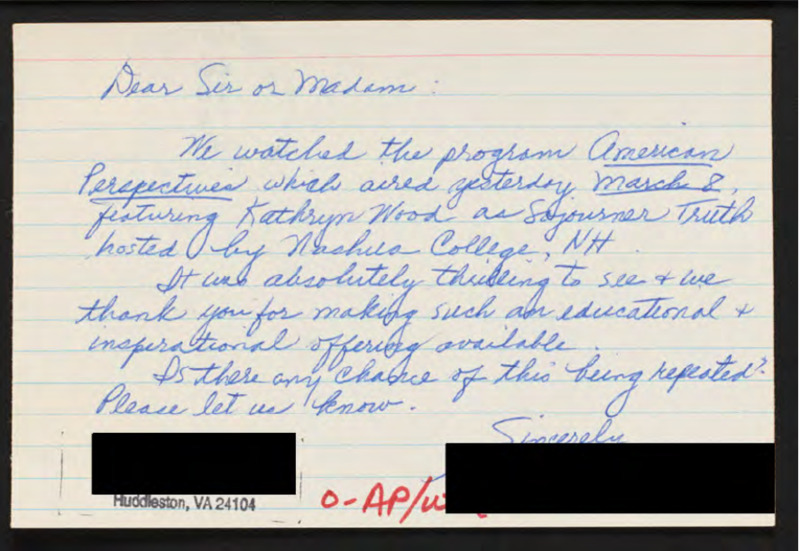 Dear Sir or Madam:
We watched the program American
Perspectives which aired yesterday, March 8,
featuring Kathryn Wood as Sojourner Truth
hosted by Nashua College, NH.
It was absolutely thrilling to see & we
thank you for making such an educational &
inspirational offering available.
Is there any chance of this being repeated?
Please let us know.
Sincerely
Huddleston, VA 24104
O-AP/